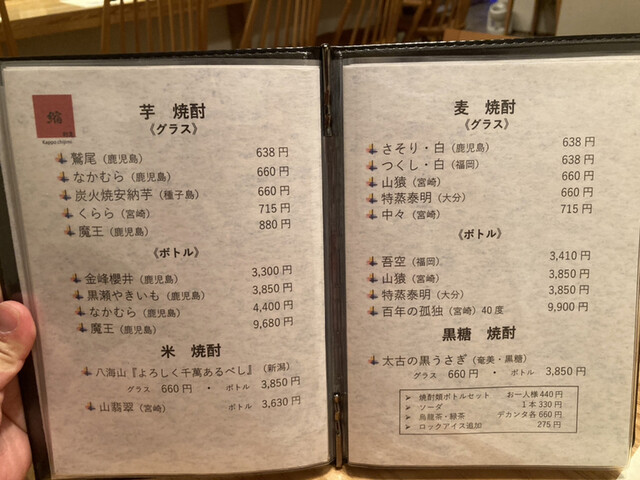 芋 焼酎
《グラス》
鷲尾（鹿児島） 638 円
なかむら（鹿児島） 660 円
炭火焼安納芋（種子島） 660 円
くらら（宮崎） 715 円
魔王（鹿児島） 880 円
《ボトル》
金峰櫻井（鹿児島） 3,300 円
黒瀬やきいも（鹿児島） 3,850 円
なかむら（鹿児島） 4,400 円
魔王（鹿児島） 9,680 円
米 焼酎
八海山『よろしく千萬あるべし』（新潟）
グラス 660 円 ・ ボトル 3,850 円
山翡翠（宮崎） ボトル 3,630 円
麦 焼酎
《グラス》
さそり・白（鹿児島） 638 円
つくし・白（福岡） 638 円
山猿（宮崎） 660 円
特蒸泰明（大分） 660 円
中々（宮崎） 715 円
《ボトル》
吾空（福岡） 3,410 円
山猿（宮崎） 3,850 円
特蒸泰明（大分） 3,850 円
百年の孤独（宮崎）40 度 9,900 円
黒糖 焼酎
太古の黒うさぎ（奄美・黒糖）
グラス 660 円 ・ ボトル 3,850 円
➢ 焼酎類ボトルセット お一人様 440 円
➢ ソーダ 1 本 330 円
➢ 烏龍茶・緑茶 デカンタ各 660 円
➢ ロックアイス追加 275 円